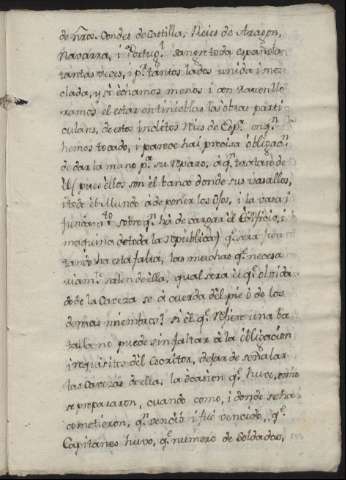 de nros. Condes de Castilla, Reies de Aragon,
Navarra, i Portugl. sangre toda española
tantas veces, i pr. tantos lados unida i mez-
clada, y si echamos menos i con
ramos el estar en tinieblas las otras parti-
culars, de estos inclitos Reies de Espa. en qe.
hemos tocado, i parece hai precisa obligacn.
de dar la mano pa. su reparo, a qe.
(pues ellos son el banco donde sus vasallos,
i todo el Mundo à de poner los ojos, i la vasa i
fundamto. sobre qe. ha de cargar el Edificio, i
maquina de toda la Republica) qe. sera
tanto ha esta falta, las muchas qe. necesa-
riamte. salen de ella, qual sera el qe. olvida-
do de la Caveza se à cuerda del pie ò de los
demas miembros? si el qe. refiere una ba-
talla no puede sin faltar à la obligacion
i requisitos del Escritor, dejar de señalar
las Cavezas de ella, la ocasion qe. huvo, como
se prepararon, cuando como, i donde se ha
cometieron, qn. venciò i fuè vencido, qe.
Capitanes huvo, qe. numero de Soldados,